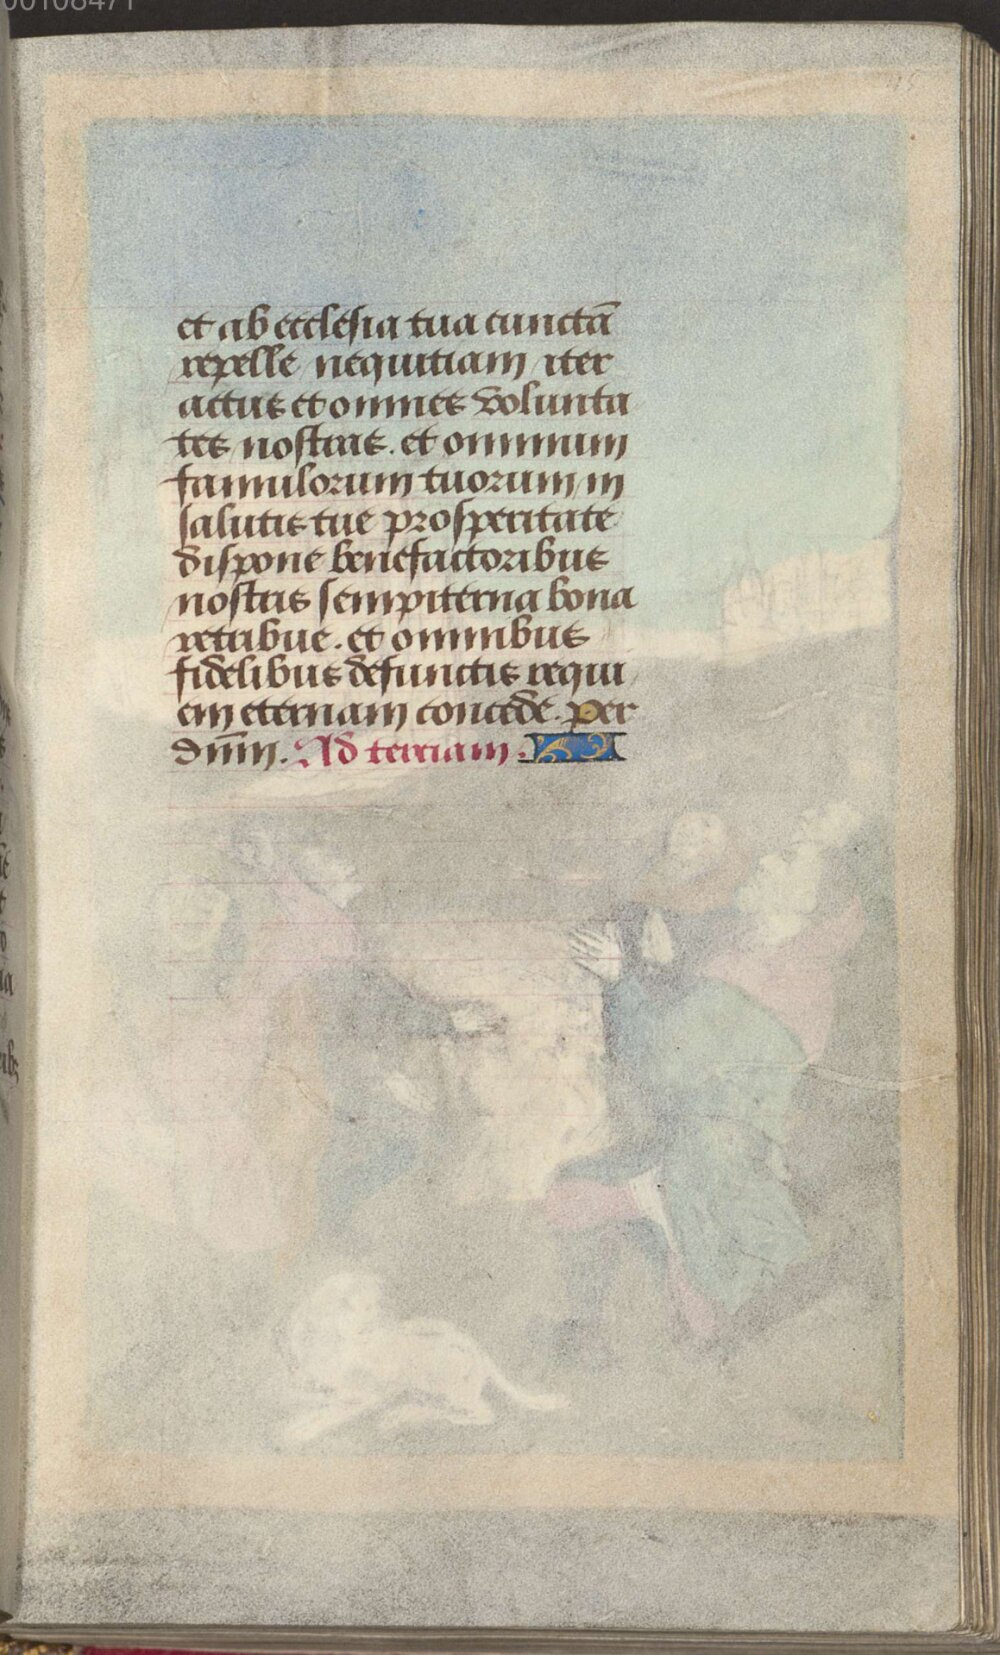 00108471
et ab ecclesia tua cunctā
repelle nequitiam iter
actus et omnes volunta
tes nostras. et omnium
famulorum tuorum in
salutis tue prosperitate
dispone benefactoribus
nostris sempiterna bona
retribue. et omnibus
fidelibus defunctis requi
em eternam concede. per
dnm̄. Ad terciam.